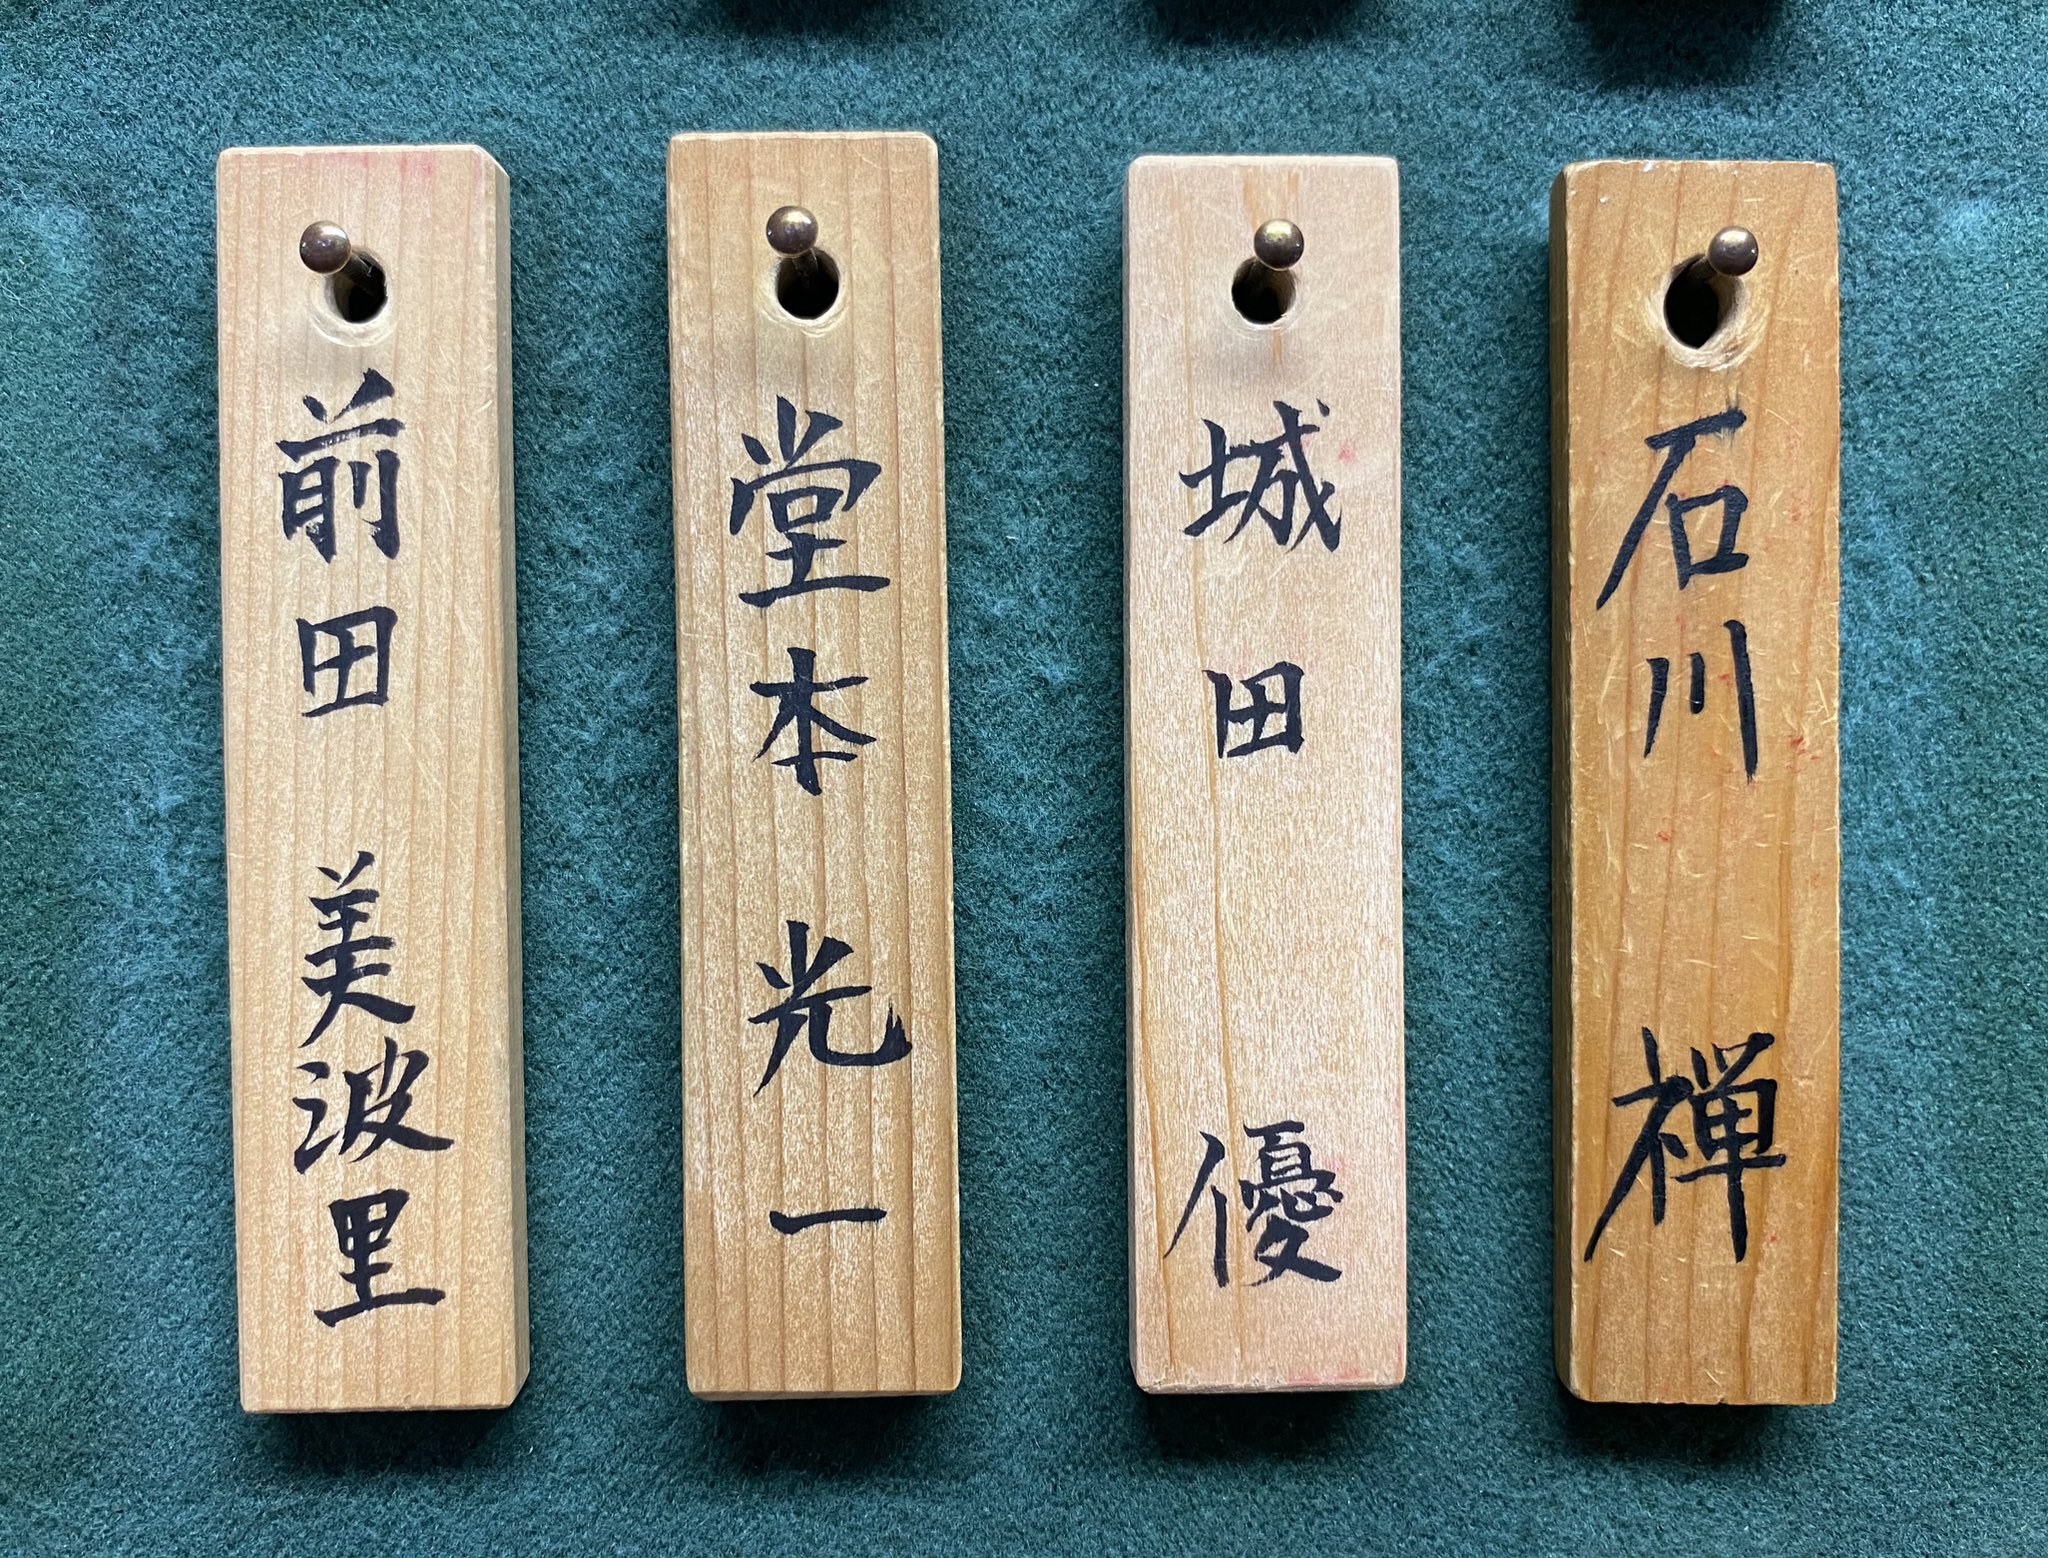 石川 禅
城田 優
堂本 光一
前田 美波里